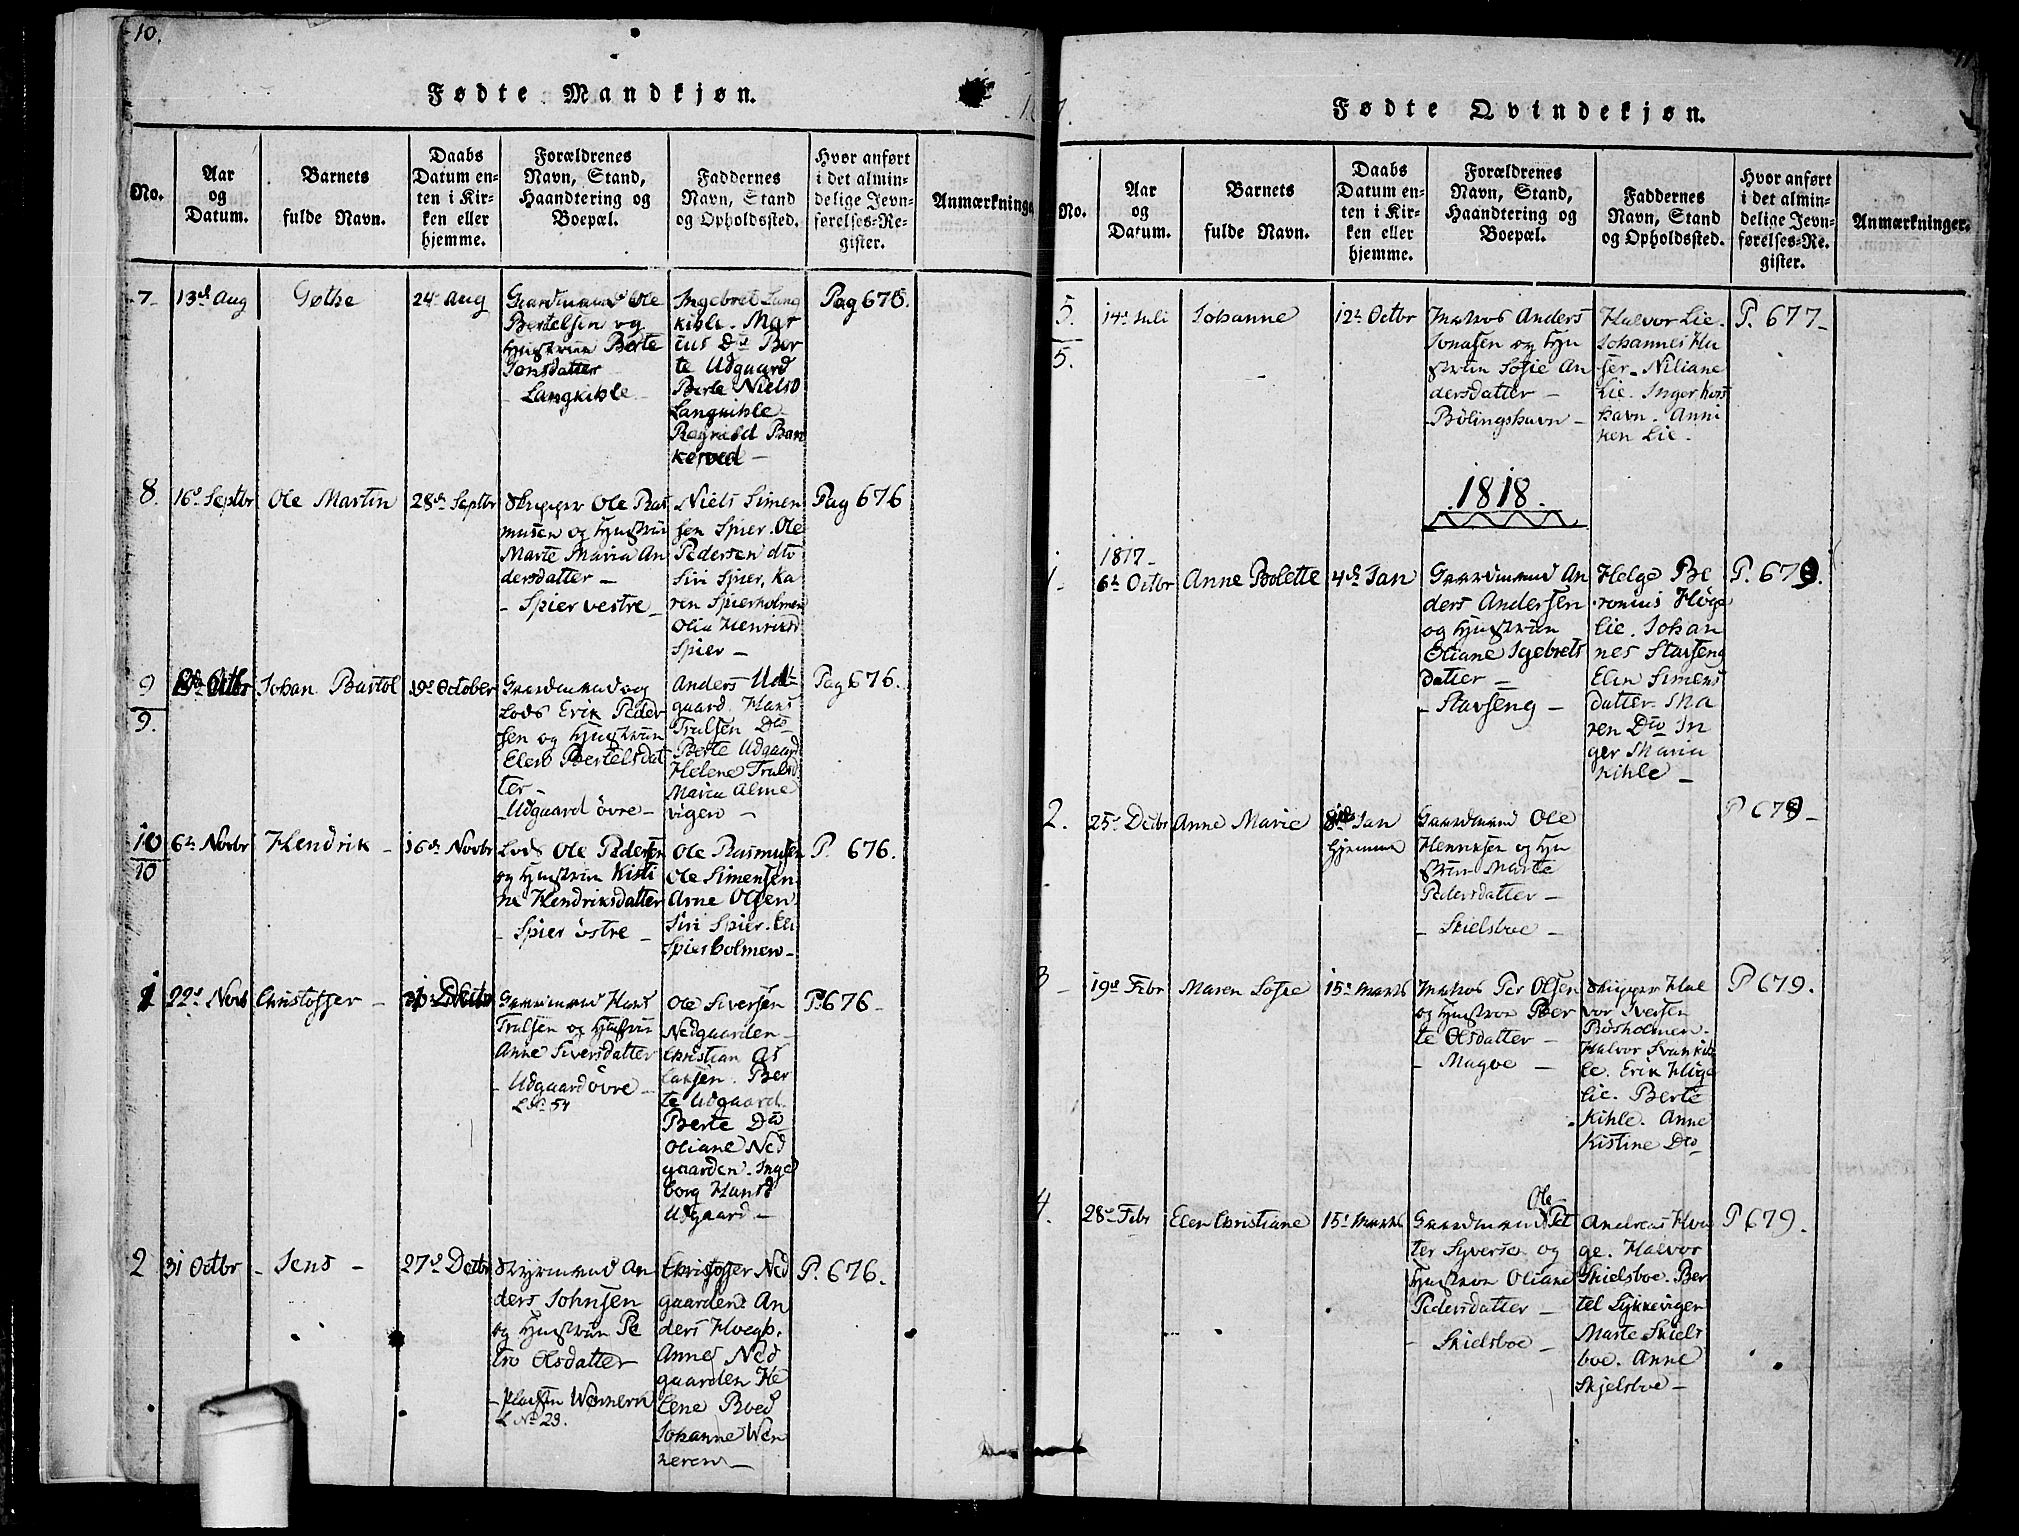 10.
Fødte Mandkjøn.
No.
Aar
og
Datum.
Barnets
fulde Navn.
Daabs
Datum en-
ten i Kir-
ken eller
hjemme.
Forældrenes
Navn, Stand,
Haandtering og
Boepæl.
Faddernes
Navn, Stand
og Opholdssted.
Hvor anført
i det almin-
delige Jevn-
førelses-Re-
gister.
Anmærkninger
7-
13de Aug
Gøthe
24de Aug
Gaardmand Ole
Bertelsen og
Hustrue Berte
Jonsdatter
- Langkihle -
Ingebret Lang
kihle. Mar
cus Do Ber
te Udgaard
Berte Nielsd
Langkihle
Ragnild Ban
kerød -
Pag 676.
8.
16de Septbr
Ole Martin
28de Septbr
Skipper Ole Ras
musen og Hustrue
Marte Maria An
dersdatter -
- Spier vestre -
Niels Simen
sen Spier. Ole
Pedersen dto
Siri Spier, Ka
ren Spierholmen
Olia Henriksd
Spier -
Pag 676
9
9.
Octbr
Johan Bastol
19de October
Gaardmand og
Lods Erik Peder
sen og Hustrue
Elen Bertelsdat
ter -
- Udgaard øvre -
Anders Ud
gaard. Hans
Trulsen Do
Berte Udgaard
Helene Trulsd
Maria Alme
vigen -
Pag 676.
10
10
6te Novbr
Hendrik -
16de Novbr
Lods Ole Pedersen
og Hustrue Kisti
ne Hendriksdatter
- Spier østre -
Ole Rasmusen
Ole Simensen
Arne Olsen.
Siri Spier. Eli
Spierholmen -
P. 676.
1
22de Novb
Christoffer -
Gaardmand Hans
Trulsen og Hustrue
Anne Siversdatter
- Udgaard øvre -
L No 54
Ole Siversen
Nedgaarden -
Christian As
laksen. Ber
te Udgaard.
Berte Do
Oliane Ned
gaarden. Inge
borg Hansd
Udgaard. -
P. 676 -
2
31 Octbr
- Jens -
27de Decbr
Styrmand An
ders Johnsen
og Hustrue Pe
tro Olsdatter
- Pladsen Wennern
L No 29.
Christoffer Ned
gaarden. An
ders Hvegh.
Anne Ned
gaarden He
lene Boed
Johanne Wen
neren -
P. 676.
Fødte Qvindekjøn.
No.
Aar
og
Datum.
Barnets
fulde Navn.
Daabs
Datum en-
ten i Kir-
ken eller
hjemme.
Forældrenes
Navn, Stand,
Haandtering og
Boepæl.
Faddernes
Navn, Stand
og Opholdssted.
Hvor anført
i det almin-
delige Jevn-
førelses-Re-
gister.
Anmærkninger.
5.
5.
14de Juli
Johanne
12te Octbr
Matros Anders
Jonasen og Hu
strue Sofie An
dersdatter -
- Bølingshavn -
Halvor Lie.
Johannes Hu
ser. Niliane
Lie. Inger Kors
havn. Anni
ken Lie -
P. 677 -
1818.
1
1817 -
6te Octbr
Anne Bolette
4de Jan
Gaardmand An
ders Andersen
og Hustrue
Oliane Igebrets
datter -
- Stavseng -
Helge Be
ronius Høge
Lie. Johan
nes Stavseng
Elen Simens
datter. Ma
ren Do In
ger Maria
Kihle -
P. 679.
2.
25de Decbr
Anne Marie
8de Jan
hjemme
Gaardmand Ole
Henriksen og Hu
strue Marte
Pedersdatter -
- Skielsboe -
P 679 -
3 -
19de Febr
Maren Sofie
15de Marts
Matros Per Olsen
og Hustrue Ber
te Olsdatter -
- Magøe -
Skipper Hal
vor Iversen
Bøsholmen.
Halvor Svankih
le. Erik Høge
lie. Berte
Kihle. Anne
Kistine Do
P 679.
4.
28de Febr
Elen Christiane
15de Marts
Ole
Gaardmand Pet
ter Syversen og
Hustrue Oliane
Pedersdatter -
- Skielsboe -
Andreas Hve
ge. Halvor
Skielsboe. Ber
tel Lykkevigen
Marte Skiels
boe. Anne
Skjelsboe -
P 679.